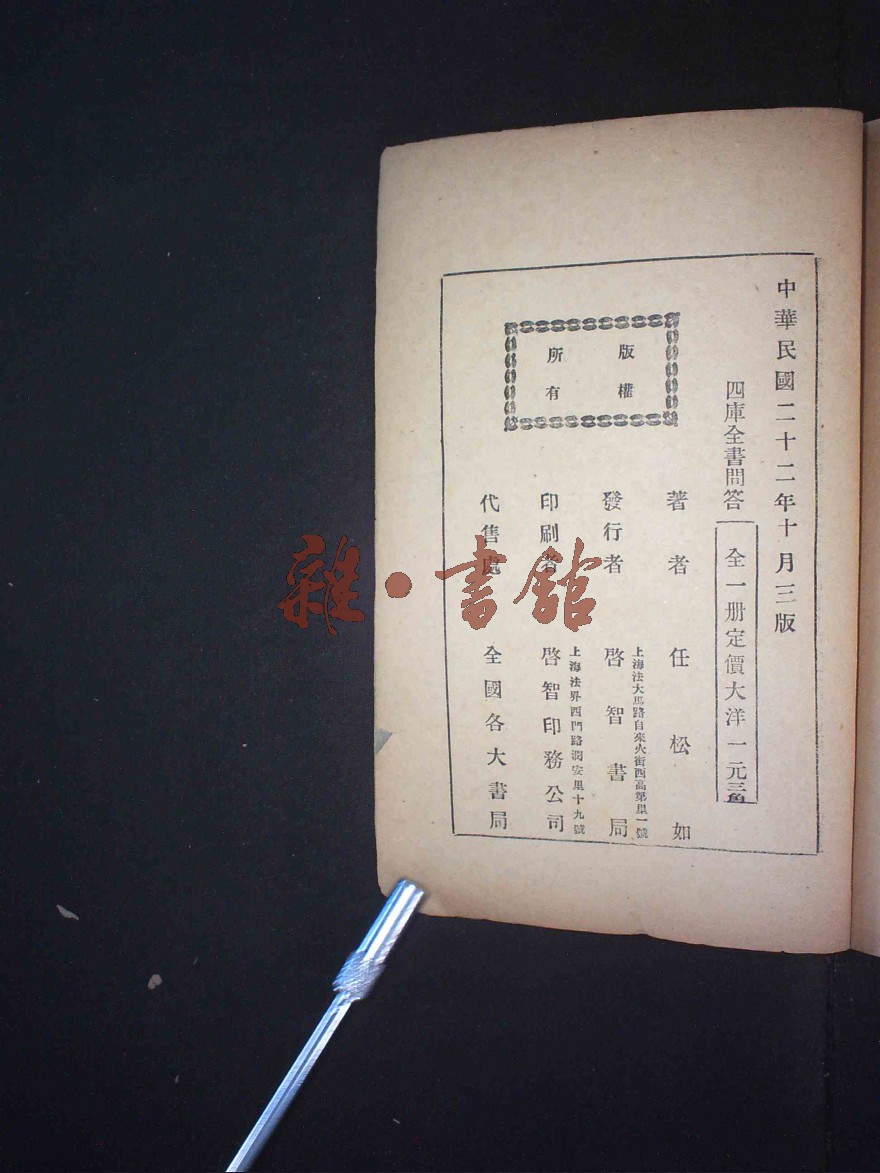 中華民國二十二年十月三版
四庫全書問答
全一册定價大洋一元三角
版權
所有
著者 任松如
上海法大馬路自來火街西高第里一號
發行者 啓智書局
上海法界西門路潤安里十九號
印刷者 啓智印務公司
代售處 全國各大書局
雜·書館